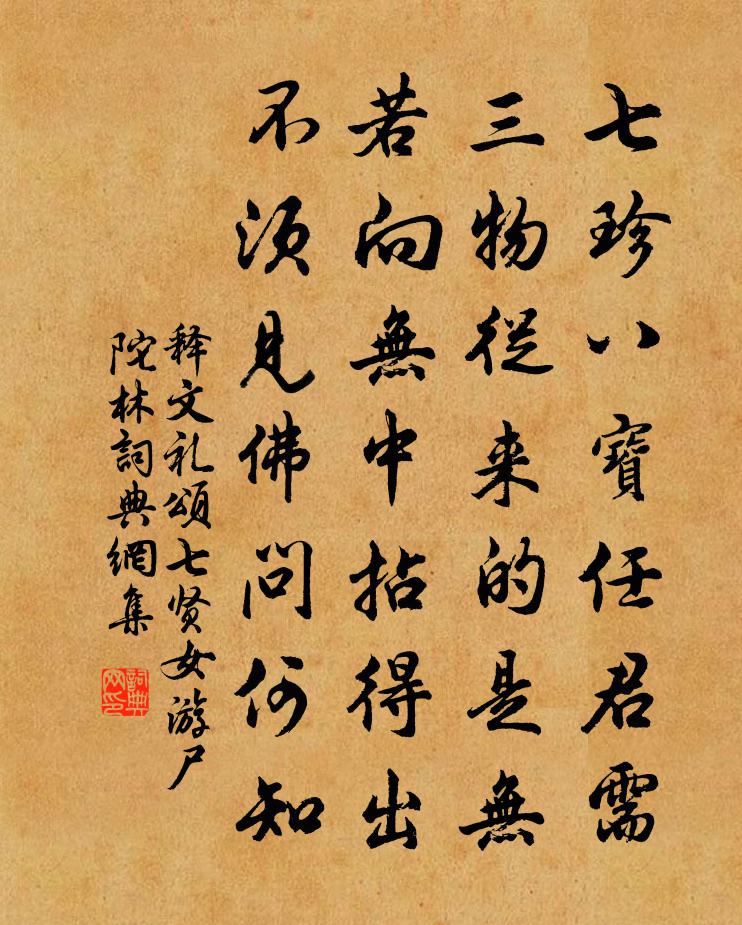 七珍八寶任君需
三物從来的是無
若向無中拈得出
不須見佛問何知
释文礼頌七贤女游尸
陀林詞典網集
詞典网印